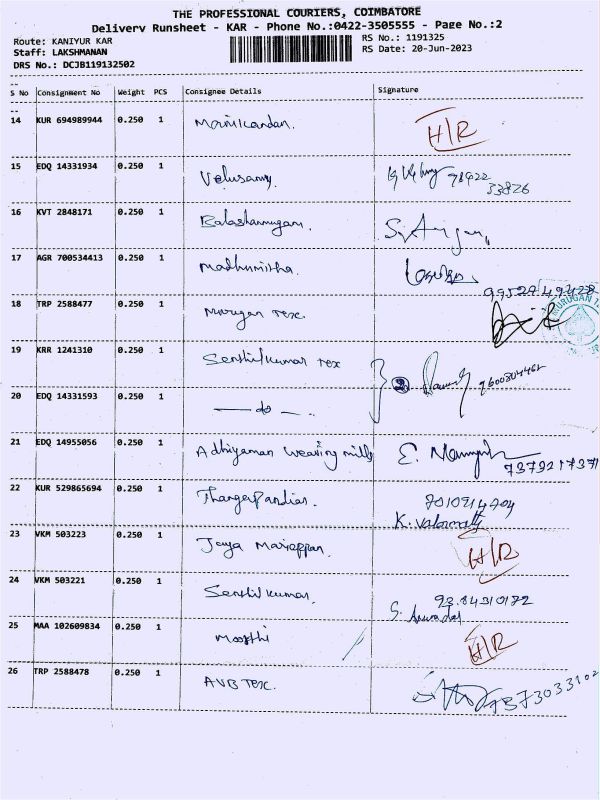 THE PROFESSIONAL COURIERS, COIMBATORE
Delivery Runsheet - KAR - Phone No.:0422-3505555 - Page No.:2
Route: KANIYUR KAR RS No.: 1191325
Staff: LAKSHMANAN RS Date: 20-Jun-2023
DRS No.: DCJB119132502
S No Consignment No Weight PCS Consignee Details Signature
14 KUR 694989944 0.250 1 Manikandan. H/R
15 EDQ 14331934 0.250 1 Velusamy 98422
33826
16 KVT 2848171 0.250 1 Balashanmugam.
17 AGR 700534413 0.250 1 Madhumitha.
99529 49428
18 TRP 2588477 0.250 1 Murugan Tex.
19 KRR 1241310 0.250 1 Senthilkumar Tex 2 9600804462
20 EDQ 14331593 0.250 1 — do —.
21 EDQ 14955056 0.250 1 Adhiyaman weaving mills E.
7373217371
22 KUR 529865694 0.250 1 Thangapandian. 7010214704
K. Valarmathy
23 VKM 503223 0.250 1 Jaya Mariappan. H/R
24 VKM 503221 0.250 1 Senthilkumar. 93.84310172
S.
25 MAA 102609834 0.250 1 Moorthi H/R
26 TRP 2588478 0.250 1 AVB Tex.